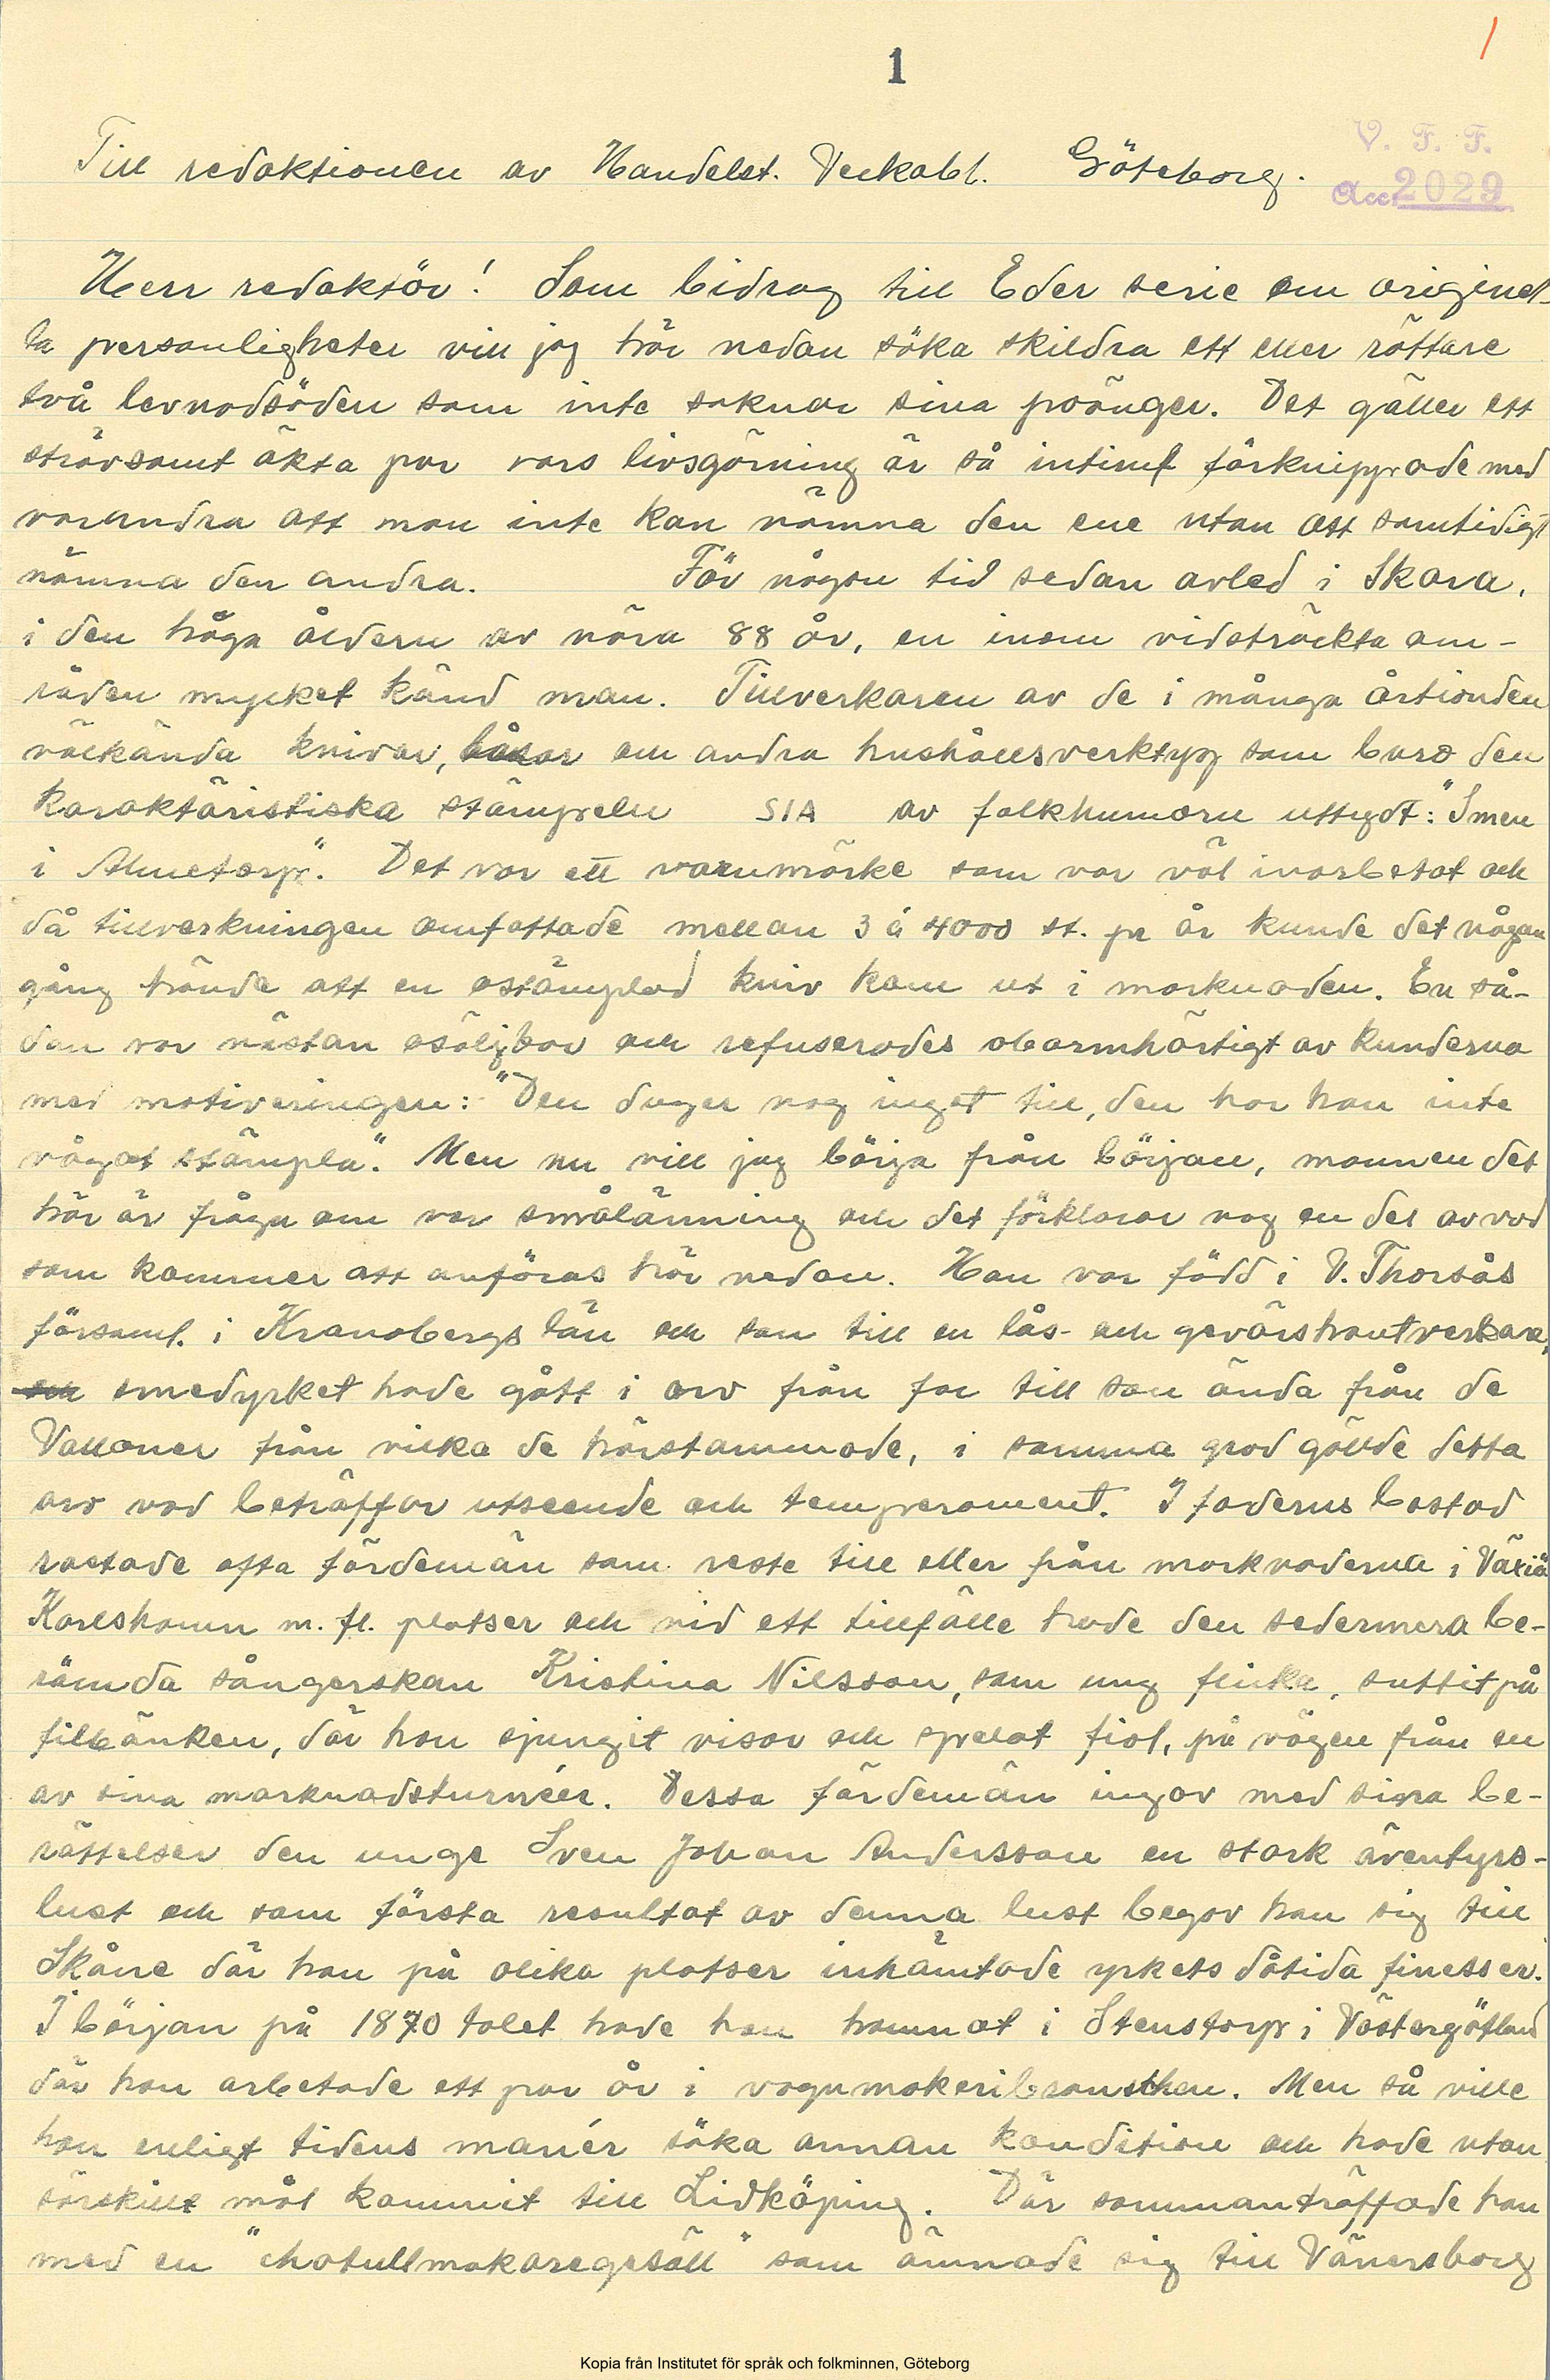 1
/
V. F. F.
Acc. 2029
Till redaktionen av Handelst. Veckobl. Göteborg.
Herr redaktör! Som bidrag till Eder serie om originel-
la personligheter vill jag här nedan söka skildra ett eller rättare
två levnadsöden som inte saknar sina poänger. Det gäller ett
strävsamt äkta par vars livsgärning är så intimt förknippade med
varandra att man inte kan nämna den ene utan att samtidigt
nämna den andra. För någon tid sedan avled i Skara,
i den höga åldern av nära 88 år, en inom vidsträckta om-
råden mycket känd man. Tillverkaren av de i många årtionden
välkända knivar, låsar och andra hushållsverktyg som buro den
karaktäristiska stämpeln SIA av folkhumorn uttytt: "Smen
i Almetorp". Det var ett varumärke som var väl inarbetat och
då tillverkningen omfattade mellan 3 à 4000 st. pr år kunde det någon
gång hända att en ostämplad kniv kom ut i marknaden. En så-
dan var nästan osäljbar och refuserades obarmhärtigt av kunderna
med motiveringen: "Den duger nog inget till, den har han inte
vågat stämpla". Men nu vill jag börja från början, mannen det
här är fråga om var smålänning och det förklarar nog en del av vad
som kommer att anföras här nedan. Han var född i V. Thorsås
församl. i Kronobergs län och son till en lås- och gevärshantverkare,
och smedyrket hade gått i arv från far till son ända från de
Valloner från vilka de härstammade, i samma grad gällde detta
arv vad beträffar utseende och temperament. I faderns bostad
rastade ofta fördemän som reste till eller från marknaderna i Växiö
Karlshamn m. fl. platser och vid ett tillfälle hade den sedermera be-
römda sångerskan Kristina Nilsson, som ung flicka, suttit på
filbänken, där hon sjungit visor och spelat fiol, på vägen från en
av sina marknadsturnéer. Dessa färdemän ingav med sina be-
rättelser den unge Sven Johan Andersson en stark äventyrs-
lust och som första resultat av denna lust begav han sig till
Skåne där han på olika platser inhämtade yrkets dåtida finesser.
I början på 1870 talet hade han hamnat i Stenstorp i Västergötland
där han arbetade ett par år i vagnmakeribranschen. Men så ville
han enligt tidens manér söka annan kondition och hade utan
särskilt mål kommit till Lidköping. Där sammanträffade han
med en "schatullmakaregesäll" som ämnade sig till Vänersborg
Kopia från Institutet för språk och folkminnen, Göteborg